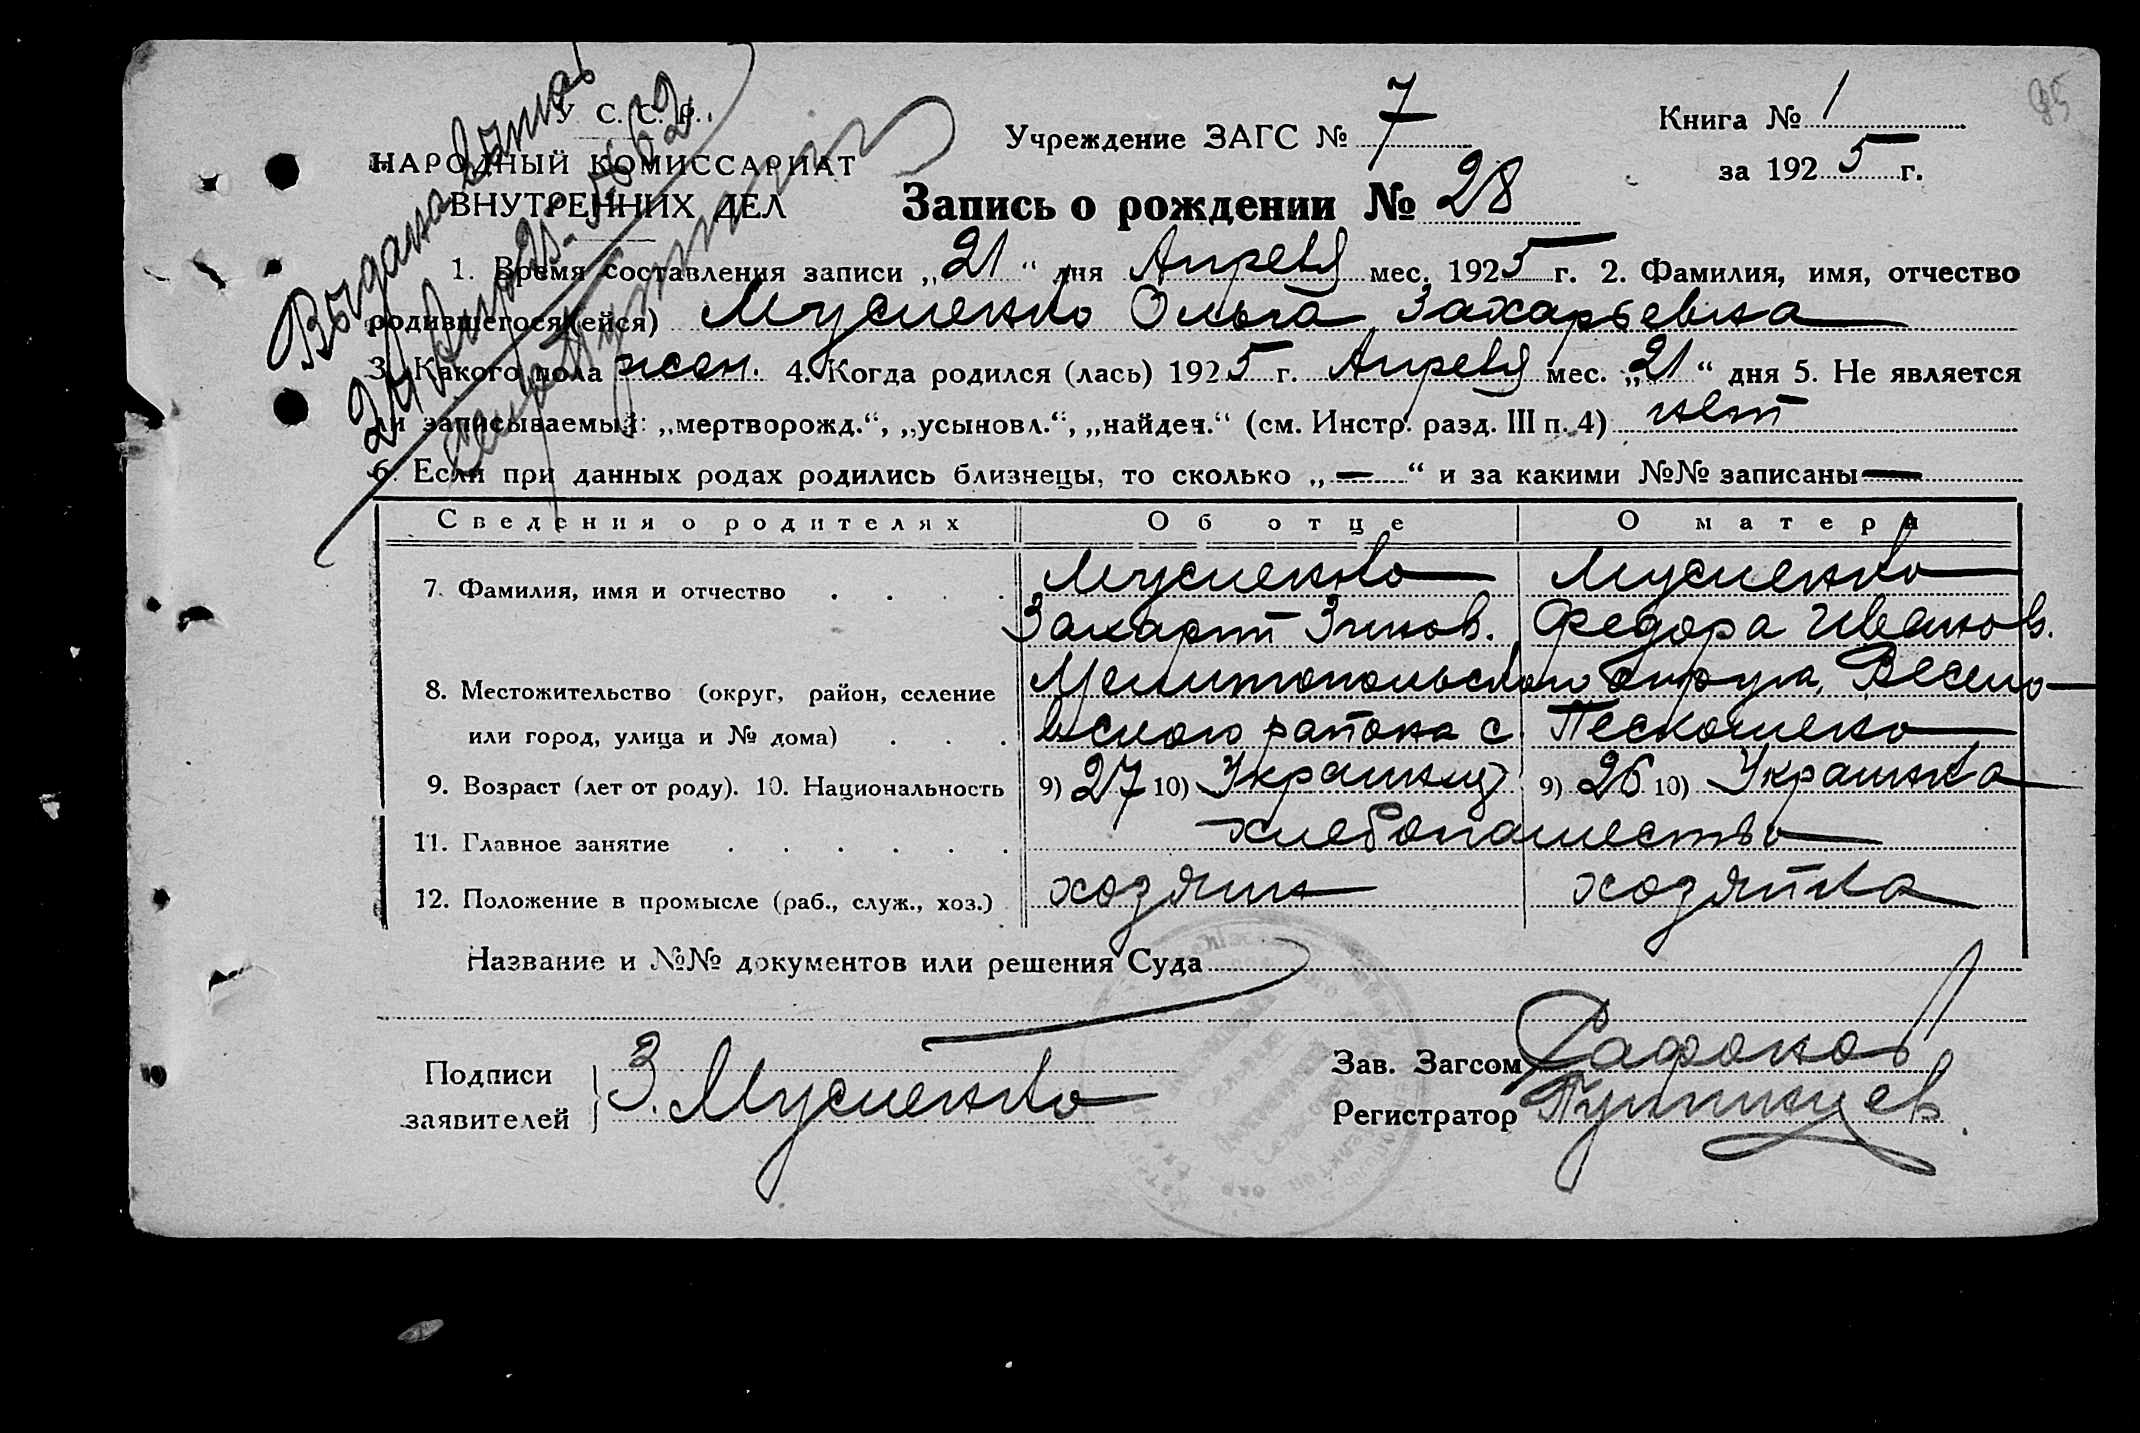 У. С. С. Р.
НАРОДНЫЙ КОМИССАРИАТ
ВНУТРЕННИХ ДЕЛ
Выдана выпись
Учреждение ЗАГС № 7
Книга № 1
за 1925 г.
85
Запись о рождении № 28
1. Время составления записи „21“ дня Апреля мес. 1925 г. 2. Фамилия, имя, отчество
родившегося (ейся) Мусиенко Ольга Захарьевна
3. Какого пола жен. 4. Когда родился (лась) 1925 г. Апреля мес. „21“ дня 5. Не является
ли записываемый: „мертворожд.“, „усыновл.“, „найден.“ (см. Инстр. разд. III п. 4) нет
6. Если при данных родах родились близнецы, то сколько „—“ и за какими №№ записаны —
Сведения о родителях Об отце О матери
7. Фамилия, имя и отчество . . . . Мусиенко Мусиенко
Захарий Зинов. Федора Иванов.
8. Местожительство (округ, район, селение Мелитопольского округа, Весело-
или город, улица и № дома) . . . вского района с. Пескошено
9. Возраст (лет от роду). 10. Национальность 9) 27 10) Украинец 9) 26 10) Украинка
11. Главное занятие . . . . . . хлебопашество
12. Положение в промысле (раб., служ., хоз.) хозяин хозяйка
Название и №№ документов или решения Суда
Подписи
заявителей } З. Мусиенко
Зав. Загсом
Регистратор